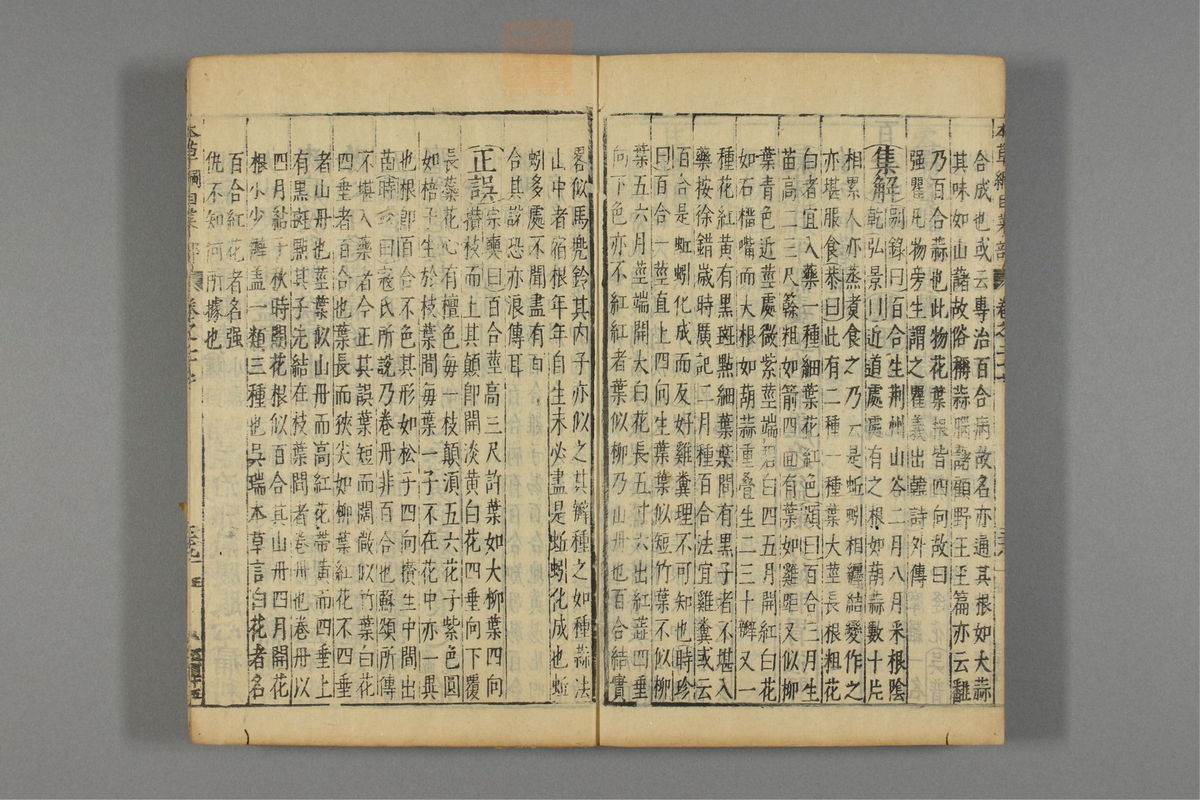 合成也或云專治百合病故名亦通其根如大蒜
其味如山藷故俗稱蒜腦藷顧野王玉篇亦云䪥
乃百合蒜也此物花葉根皆四向故曰
强瞿凡物旁生謂之瞿義出韓詩外傳
集解别錄曰百合生荆州山谷二月八月采根陰
乾弘景曰近道處處有之根如葫蒜數十片
相累人亦蒸煑食之乃云是蚯蚓相纒結變作之
亦堪服食恭曰此有二種一種葉大莖長根粗花
白者宜入藥一種細葉花紅色頌曰百合三月生
苗高二三尺簳粗如箭四面有葉如雞距又似柳
葉青色近莖處微紫莖端碧白四五月開紅白花
如石榴嘴而大根如葫蒜重疊生二三十瓣又一
種花紅黄有黒斑點細葉葉間有黒子者不堪入
藥按徐鍇歲時廣記二月種百合法宜雞糞或云
百合是蚯蚓化成而反好雞糞理不可知也時珍
曰百合一莖直上四向生葉葉似短竹葉不似柳
葉五六月莖端開大白花長五寸六出紅蕋四垂
向下色亦不紅紅者葉似柳乃山丹也百合結實
畧似馬兜鈴其内子亦似之其瓣種之如種蒜法
山中者宿根年年自生未必盡是蚯蚓化成也蚯
蚓多處不聞盡有百
合其説恐亦浪傳耳
正誤宗奭曰百合莖高三尺許葉如大柳葉四向
攅枝而上其顛即開淡黄白花四垂向下覆
長蘂花心有檀色每一枝顛須五六花子紫色圓
如梧子生於枝葉間每葉一子不在花中亦一異
也根即百合不色其形如松子四向攅生中間出
苗時珍曰寇氏所說乃卷丹非百合也蘇頌所傳
不堪入藥者今正其誤葉短而闊微似竹葉白花
四垂者百合也葉長而狹尖如柳葉紅花不四垂
者山丹也莖葉似山丹而高紅花帶黄而四垂上
有黒斑點其子先結在枝葉間者卷丹也卷丹以
四月結子秋時開花根似百合其山丹四月開花
根小少瓣盖一類三種也吳瑞本草言白花者名
百合紅花者名强
仇不知何所據也